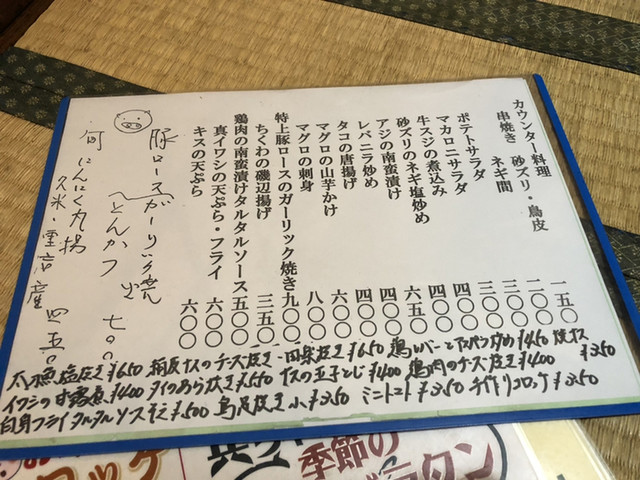 カウンター料理
串焼き 砂ズリ・鳥皮 一五〇
ネギ間 二〇〇
ポテトサラダ 三〇〇
マカロニサラダ 三〇〇
牛スジの煮込み 四〇〇
砂ズリのネギ塩炒め 四〇〇
アジの南蛮漬け 六五〇
レバニラ炒め 四〇〇
タコの唐揚げ 四〇〇
マグロの山芋かけ 六〇〇
マグロの刺身 八〇〇
特上豚ロースのガーリック焼き 九〇〇
ちくわの磯辺揚げ 三五〇
鶏肉の南蛮漬けタルタルソース 五〇〇
真イワシの天ぷら・フライ 六〇〇
キスの天ぷら 六〇〇
豚ロースガーリック焼
とんかつ 七〇〇
にんにく丸揚
久米・産 四五〇
塩焼き ¥650 ナスのチーズ焼き 焼き ¥650 鶏レバーとアスパラ炒め ¥450 焼ナス ¥350
イワシの甘露煮 ¥400 タイのあら炊き ¥550 ナスの玉子とじ ¥400 鶏肉のチーズ焼き ¥400
白身フライタルタルソース ¥500 鳥足炊き 小 ¥350 ミニトマト ¥350 手作りコロッケ ¥350
ロッケ
季節の
タン